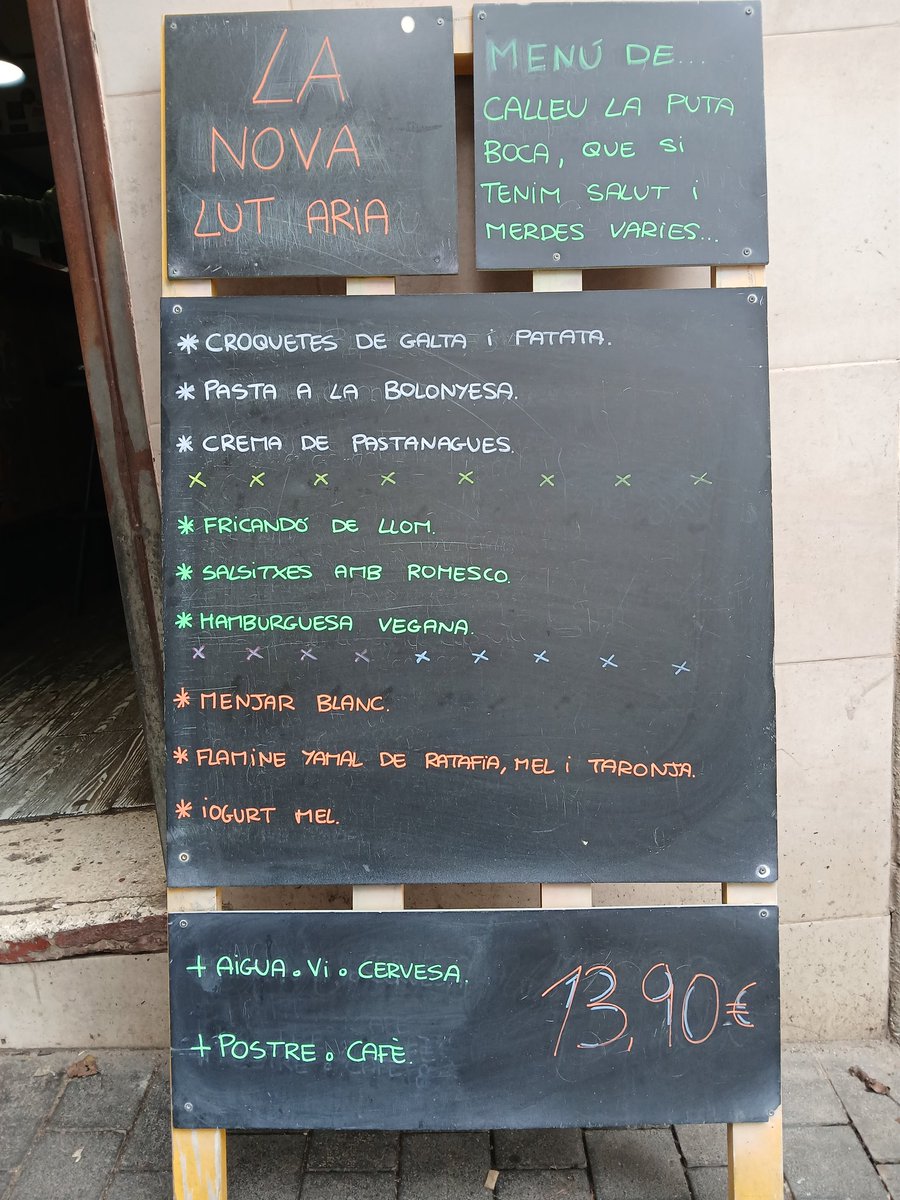 LA
NOVA
LUT ARIA
MENÚ DE...
CALLEU LA PUTA
BOCA, QUE SI
TENIM SALUT i
MERDES VARIES...
* CROQUETES DE GALTA i PATATA.
* PASTA A LA BOLONYESA.
* CREMA DE PASTANAGUES.
x x x x x x x x
* FRICANDÓ DE LLOM.
* SALSITXES AMB ROMESCO.
* HAMBURGUESA VEGANA.
x x x x x x x x x
* MENJAR BLANC.
* FLAMINE YAMAL DE RATAFIA, MEL i TARONJA.
* IOGURT MEL.
+ AIGUA o Vi o CERVESA.
+ POSTRE o CAFÈ.
13,90€